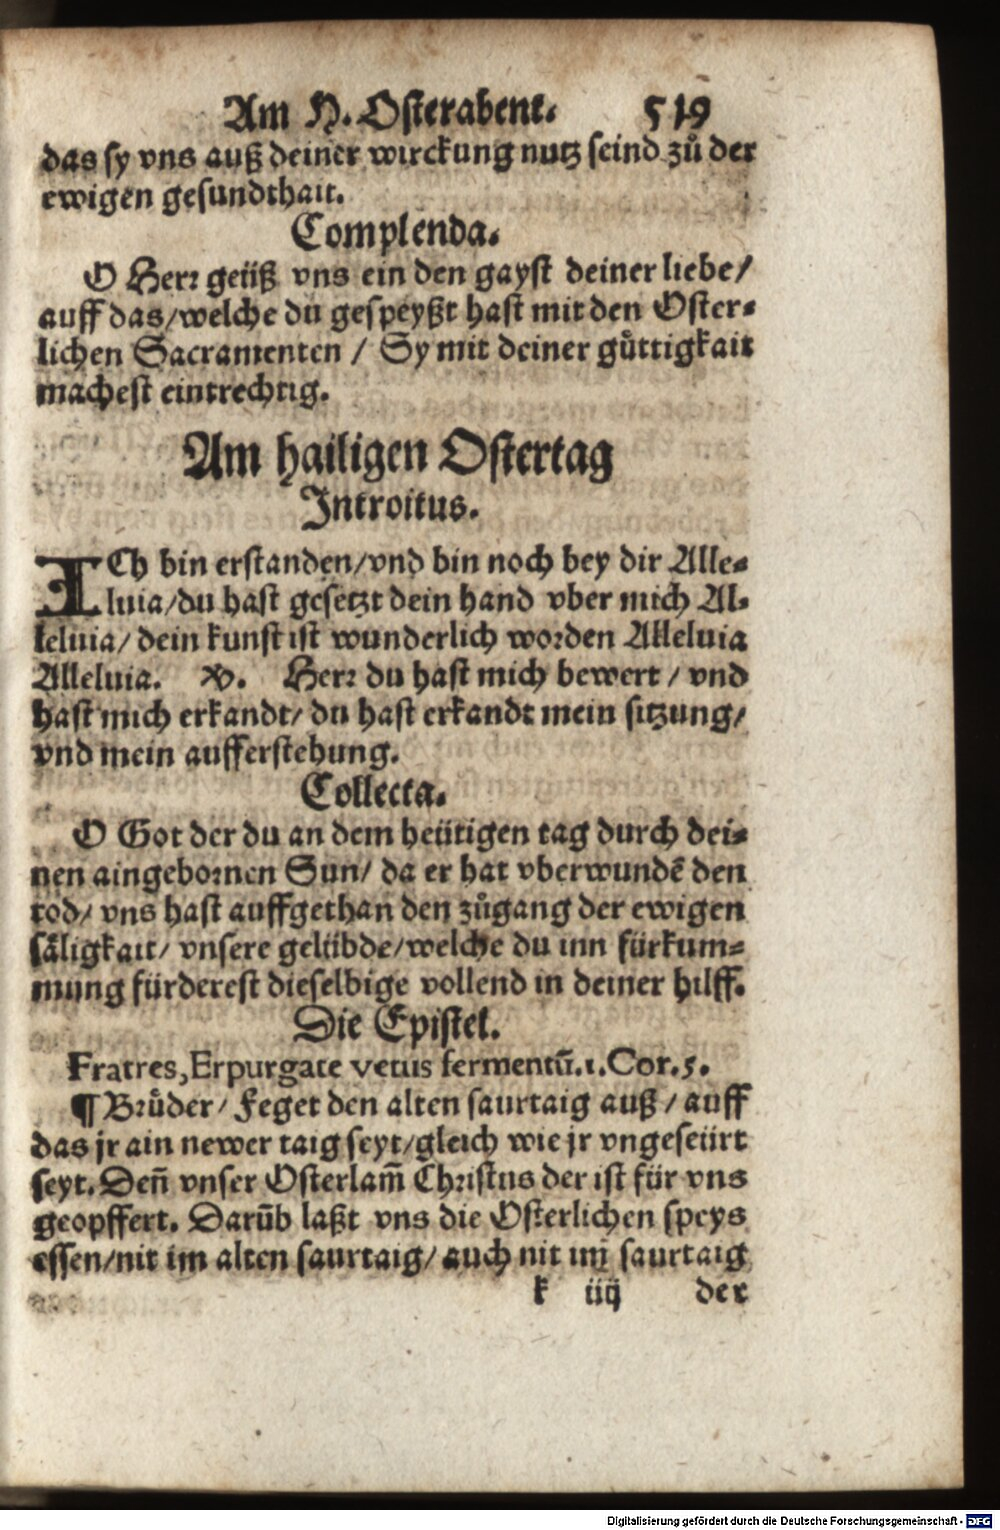 Am H. Osterabent. 519
das sy vns auß deiner wirckung nutz seind zů der
ewigen gesundthait.
Complenda.
O Herr geüß vns ein den gayst deiner liebe/
auff das/welche du gespeyßt hast mit den Oster-
lichen Sacramenten / Sy mit deiner gůttigkait
machest eintrechtig.
Am hailigen Ostertag
Introitus.
ICh bin erstanden/vnd bin noch bey dir Alle-
luia/du hast gesetzt dein hand vber mich Al-
leluia/ dein kunst ist wunderlich worden Alleluia
Alleluia. V. Herr du hast mich bewert / vnd
hast mich erkandt/ du hast erkandt mein sitzung/
vnd mein aufferstehung.
Collecta.
O Got der du an dem heütigen tag durch dei-
nen aingebornen Sun/ da er hat vberwundē den
tod/ vns hast auffgethan den zůgang der ewigen
säligkait/ vnsere gelübde/welche du inn fürkum-
mung fürderest dieselbige vollend in deiner hilff.
Die Epistel.
Fratres, Expurgate vetus fermentū.1.Cor.5.
¶ Brůder / Feget den alten saurtaig auß / auff
das jr ain newer taig seyt/gleich wie jr vngeseürt
seyt. Deñ vnser Osterlam̃ Christus der ist für vns
geopffert. Darūb laßt vns die Osterlichen speys
essen/nit im alten saurtaig/ auch nit im saurtaig
k iiij der
Digitalisierung gefördert durch die Deutsche Forschungsgemeinschaft - DFG